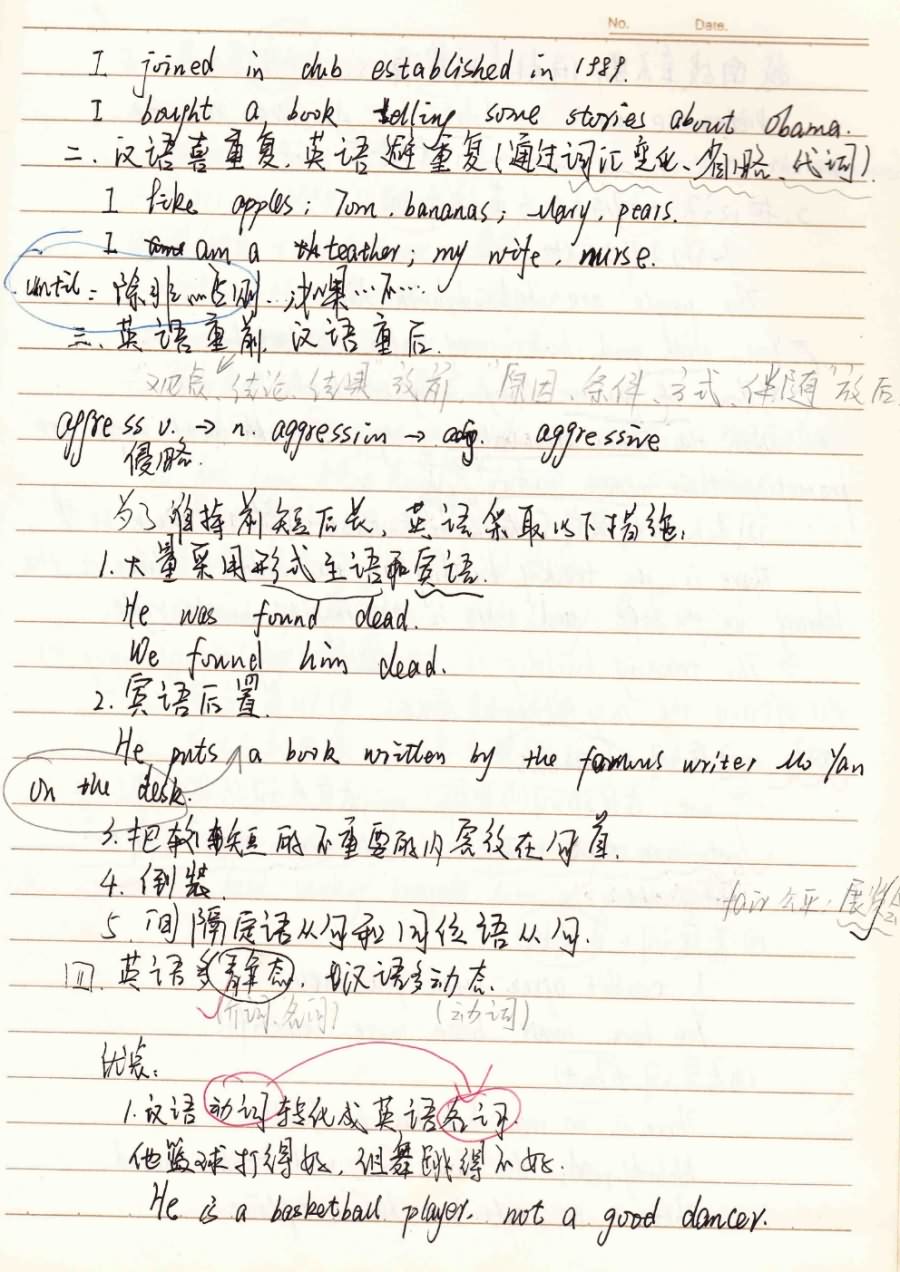 No. Date.
I joined in club established in 1989.
I bought a book telling some stories about Obama.
二、汉语喜重复,英语避重复(通过词汇变化、省略、代词)
I like apples; Tom, bananas; Mary, pears.
I am a teather; my wife, nurse.
until: 除非…否则… 如果…不…
三、英语重前,汉语重后.
"观点、结论、结果"放前,"原因、条件、方式、伴随"放后
aggress v. → n. aggression → adj. aggressive
侵略.
为了维持前短后长,英语采取以下措施:
1. 大量采用形式主语和宾语.
He was found dead.
We found him dead.
2. 宾语后置.
He puts a book written by the famous writer Mo Yan
on the desk.
3. 把较短的不重要的内容放在句首.
4. 倒装.
fair 公平;展览会
5. 间隔定语从句和同位语从句.
四、英语多静态,汉语多动态.
(介词、名词) (动词)
优先:
1. 汉语动词转化成英语名词.
他篮球打得好,但舞跳得不好.
He is a basketball player, not a good dancer.